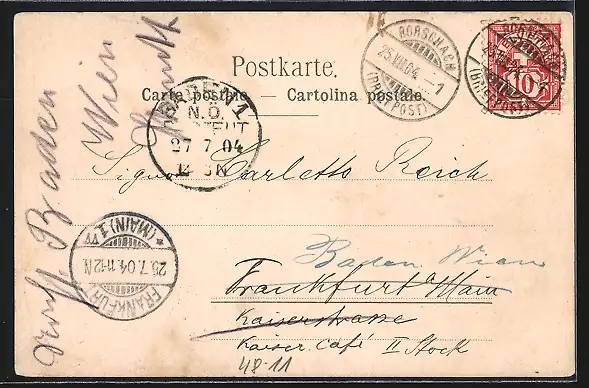 Postkarte.
Carte postale — Cartolina postale.
RORSCHACH
25.VII.04 — 1
(BRIEFPOST)
10
BADEN 1
N.Ö.
27 7 04
Signor Carletto Reich
Baden Wien
Frankfurt a/Main
Kaiserstrasse
Kaiser Café II Stock
48-11
FRANKFURT
25.7.04.11-12N
*(MAIN) 1
Baden
Wien